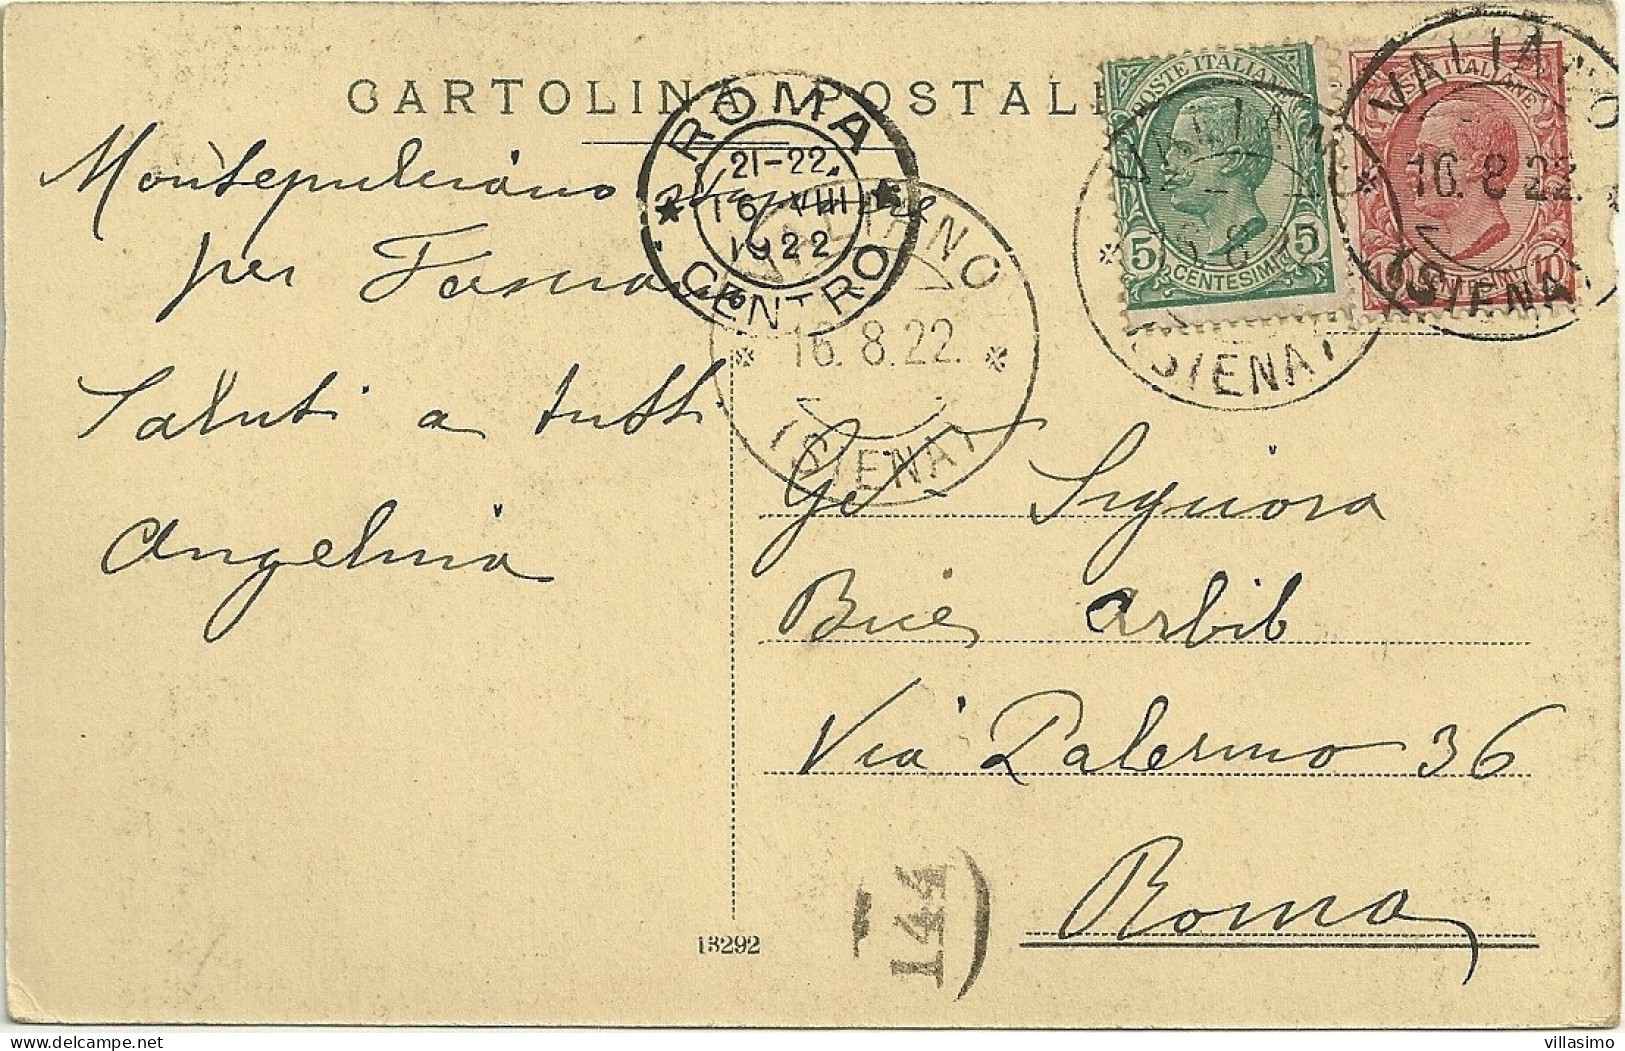 CARTOLINA POSTALE
Montepulciano
per
Saluti a tutti
Angelina
ROMA
21-22
16 VIII
1922
CENTRO
VALIANO
16.8.22.
(SIENA)
POSTE ITALIANE
5 5
CENTESIMI
VALIANO
16.8.22
(SIENA)
POSTE ITALIANE
10 10
CENTESIMI
VALIANO
16.8.22.
(SIENA)
Signora
Bice Arbib
Via Palermo 36
Roma
13292
144
delcampe.net
villasimo